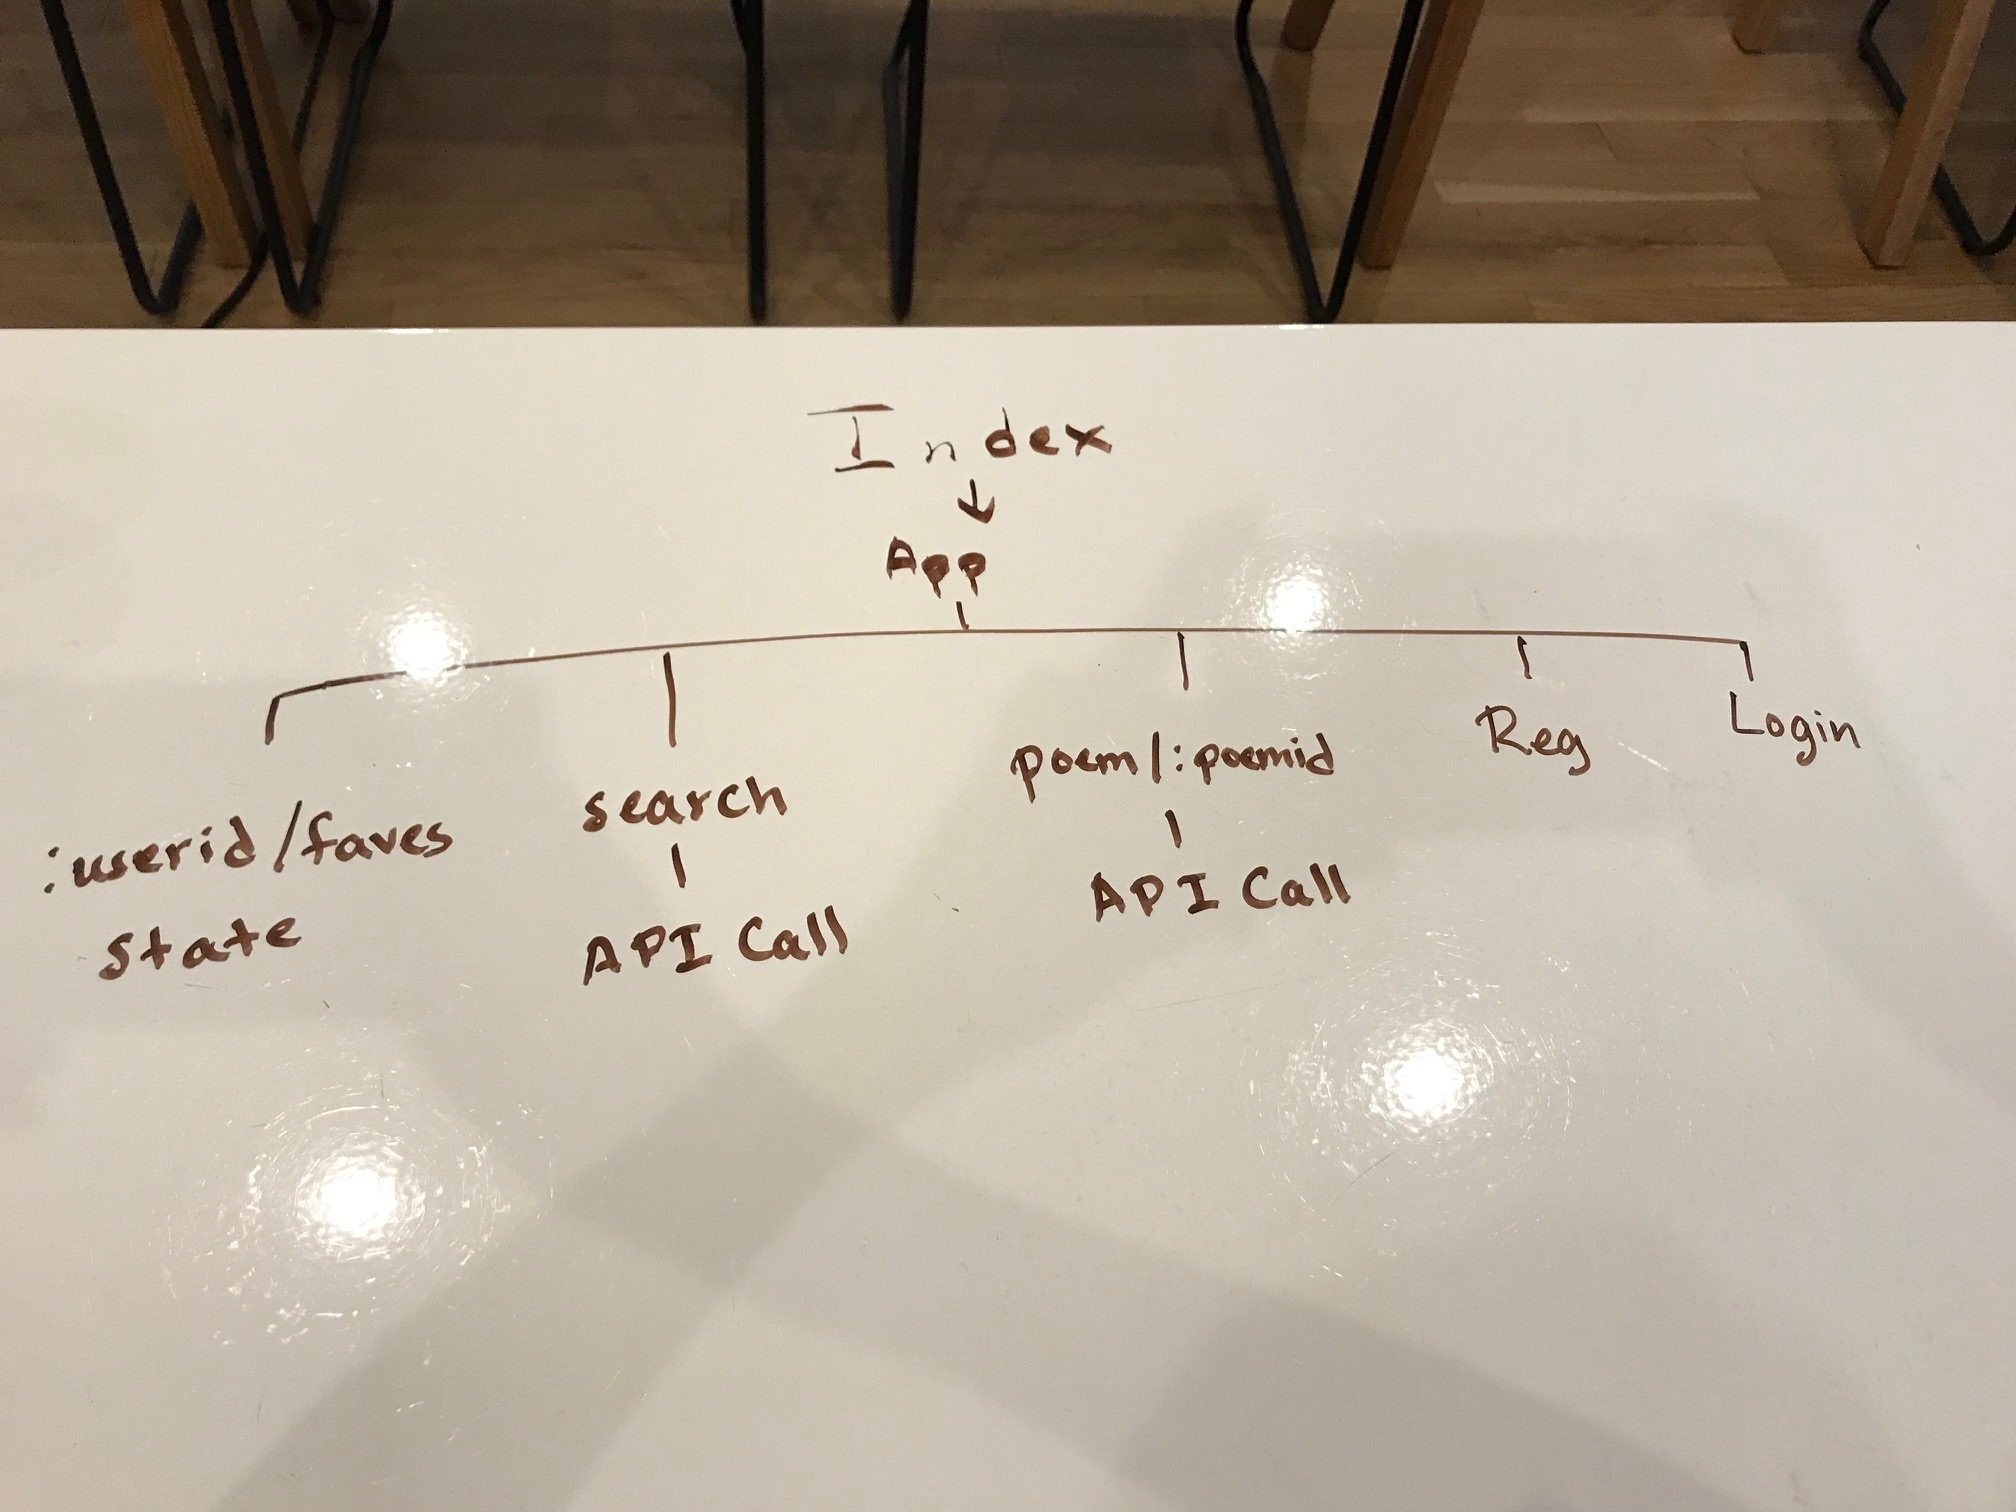 Index
App
:userid/faves
state
search
API Call
poem/:poemid
API Call
Reg
Login